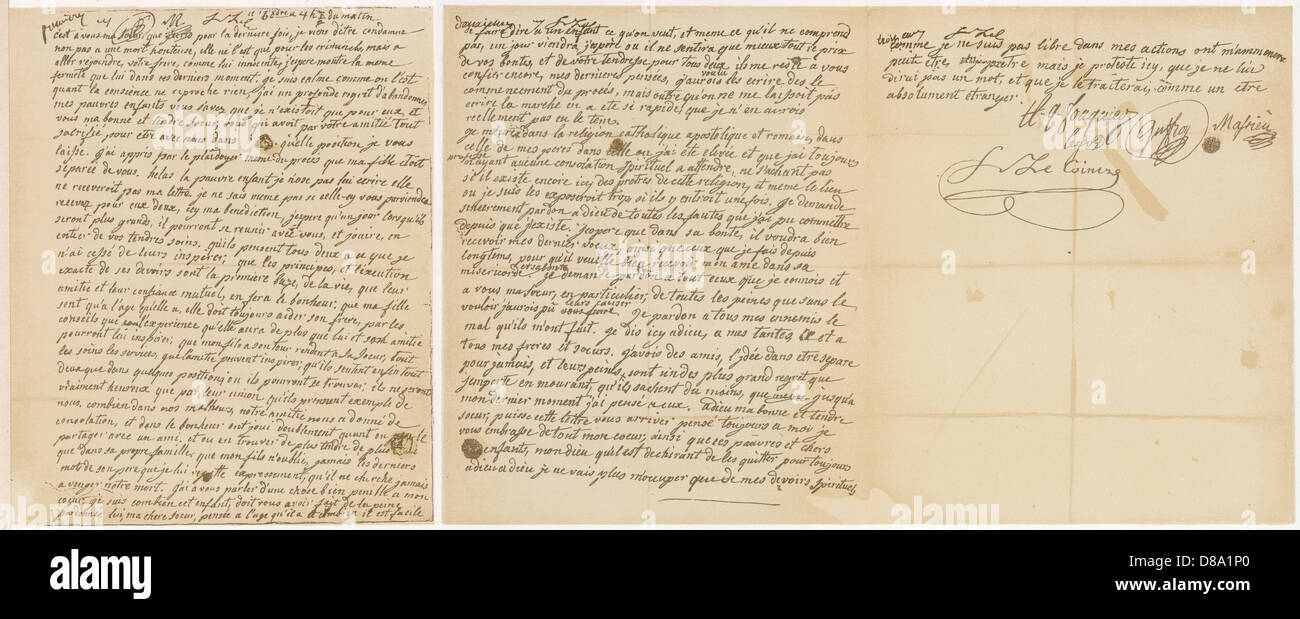 premiere
ce 16 8bre a 4 h ½ du matin
c'est a vous ma soeur, que j'ecris pour la derniere fois, je viens d'etre condamne
non pas a une mort honteuse, elle ne l'est que pour les criminels, mais a
aller rejoindre votre frere, comme lui innocente, j'espere montre la meme
fermete que lui dans ces derniers moment. je suis calme comme on l'est
quant la consience ne reproche rien, j'ai un profonde regret d'abandonner
mes pauvres enfants vous savez que je n'existoit que pour eux, et
vous ma bonne et tendre soeur, vous qui avoit par votre amitie tout
sacrifie pour etre avec nous dans quelle position je vous
laisse. j'ai appris par le plaidoyer meme du proces que ma fille etoit
separee de vous. helas la pauvre enfant je n'ose pas lui ecrire elle
ne recevroit pas ma lettre. je ne sais meme pas si celle-cy vous parviendra
recevez pour eux deux, icy ma benediction, j'espere qu'un jour lorsqu'ils
seront plus grands, il pourront se reunir avec vous, et jouire, en
entier de vos tendres soins. qu'ils pensent tous deux a ce que je
n'ai cesse de leurs inspirer; que les principes, et l'execution
exacte de ses devoirs sont la premiere baze, de la vie, que leur
amitie et leur confiance mutuel, en fera le bonheur; que ma fille
sent qu'a l'age qu'elle a, elle doit toujours aider son frere, par les
conseils que l'experience qu'elle aura de plus que lui et son amitie
pourront lui inspirer; que mon fils a son tour rendent a sa soeur, tout
les soins les services, que l'amitie peuvent inspirer; qu'ils sentent enfin tout
deux que dans quelques positions ou ils pourront se trouver, ils ne seront
vraiment heureux que par leur union. qu'ils prennent exemple de
nous, combien dans nos malheurs, notre amitie nous a donne de
consolation, et dans le bonheur ont joui doublement quant on peut le
partager avec un ami, et ou en trouver de plus tendre de plus
que dans sa propre famille, que mon fils n'oublie jamais les derniers
mot de son pere que je lui repette expressement, qu'il ne cherche jamais
a venger notre mort. j'ai a vous parler d'une chose bien penible a mon
coeur, je sais combien cet enfant, doit vous avoir fait de la peine
pardonnez lui, ma chere soeur, pensez a l'age qu'il a et combien il est facile
deuxieme
de faire dire a un enfant ce qu'on veut, et meme ce qu'il ne comprend
pas, un jour viendra, j'espere ou il ne sentira que mieux tout le prix
de vos bontes, et de votre tendresse pour tous deux il me reste a vous
confier encore, mes dernieres pensees, j'aurois voulu les ecrire des le
commencement du proces, mais outre qu'on ne me laissoit pas
ecrire la marche en a ete si rapide, que je n'en aurois
reellement pas eu le tems.
je meurs dans la religion catholique apostolique et romaine, dans
celle de mes peres dans celle ou j'ai ete elevee et que j'ai toujours
professee
n'ayant aucune consolation spirituel a attendre, ne sachant pas
s'il existe encore icy, des pretres de cette religion, et meme le lieu
ou je suis les exposeroit trop, si ils y entroit une fois. je demande
sincerement pardon a dieu de toutes les fautes que j'ai pu commettre
depuis que j'existe. j'espere que dans sa bonte, il voudra bien
recevoir mes dernier voeux, ainsi que ceux que je fais depuis
longtems, pour qu'il veuille bien recevoir mon ame dans sa
misericorde et sa bonte. je demande pardon a tout ceux que je connois et
a vous ma soeur, en particulier, de toutes les peines que sans le
vouloir j'aurois pu vous causer. je pardon a tous mes ennemis le
mal qu'ils m'ont fait. je dis icy adieu, a mes tantes, et a
tous mes freres et soeurs. j'avois des amis, l'idee d'en etre separe
pour jamais, et leurs peines, sont un des plus grand regret que
j'emporte en mourant, qu'ils sachent du moins, que jusqu'a
mon dernier moment j'ai pense a eux. adieu ma bonne et tendre
soeur, puisse cette lettre vous arriver pense toujours a moi je
vous embrasse de tout mon coeur, ainsi que ces pauvres et chers
enfants, mon dieu qu'il est dechirant de les quitter pour toujours
adieu adieu je ne vais plus m'occuper que de mes devoirs spirituels
comme je ne suis pas libre dans mes actions on m'ammenera
peut etre un pretre mais je proteste icy, que je ne lui
dirai pas un mot, et que je le traiterai comme un etre
absolument etranger.
Legrand Guffroy Massieu
L Le Cointre
alamy
D8A1P0
www.alamy.com